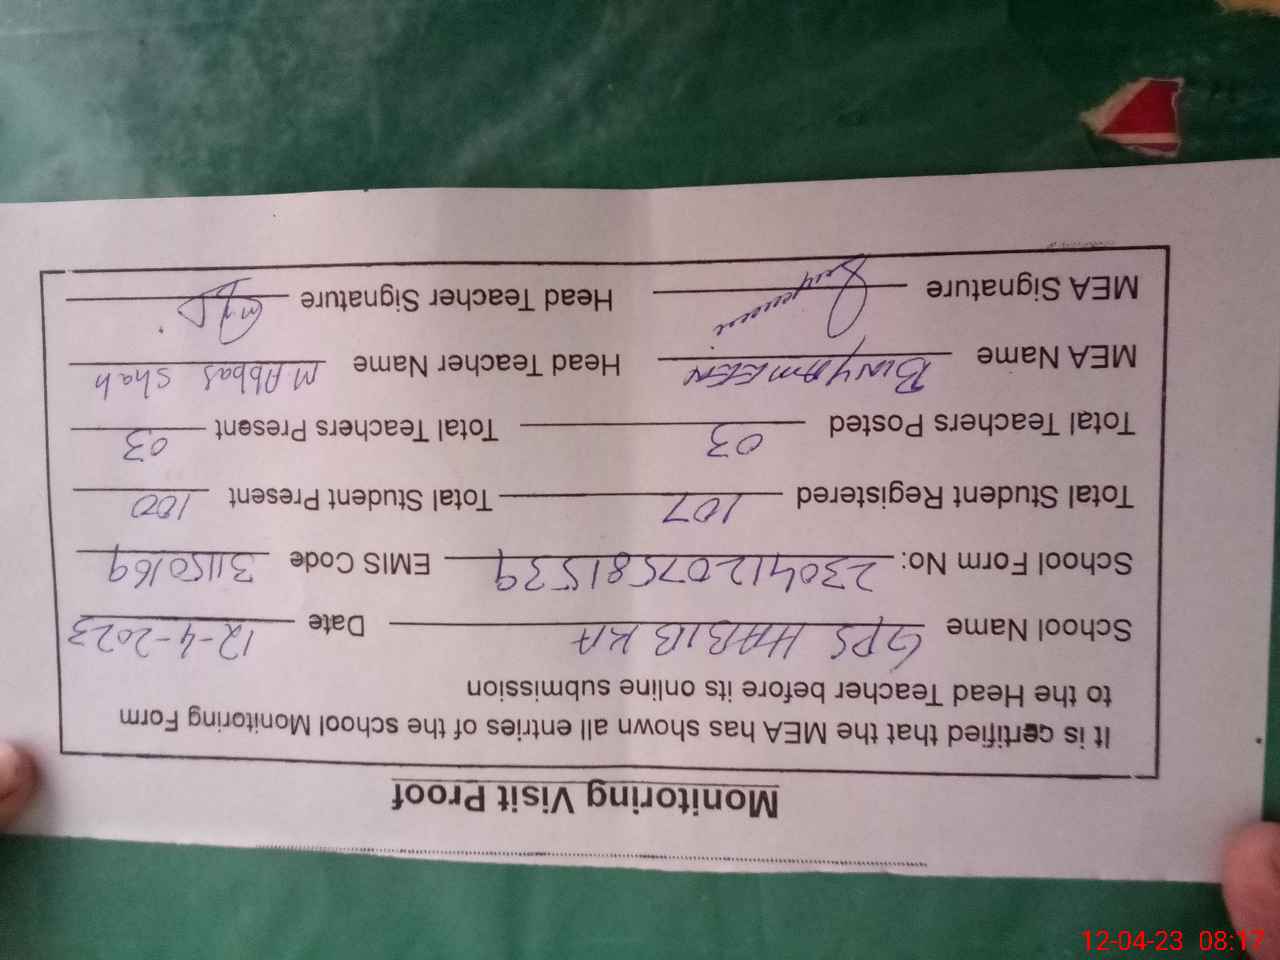 Monitoring Visit Proof
It is certified that the MEA has shown all entries of the school Monitoring Form
to the Head Teacher before its online submission
School Name GPS HABIB KA Date 12-4-2023
School Form No: 23041207581539 EMIS Code 31150169
Total Student Registered 107 Total Student Present 100
Total Teachers Posted 03 Total Teachers Present 03
MEA Name BINYAMEEN Head Teacher Name M Abbas Shah
MEA Signature Head Teacher Signature
12-04-23 08:17